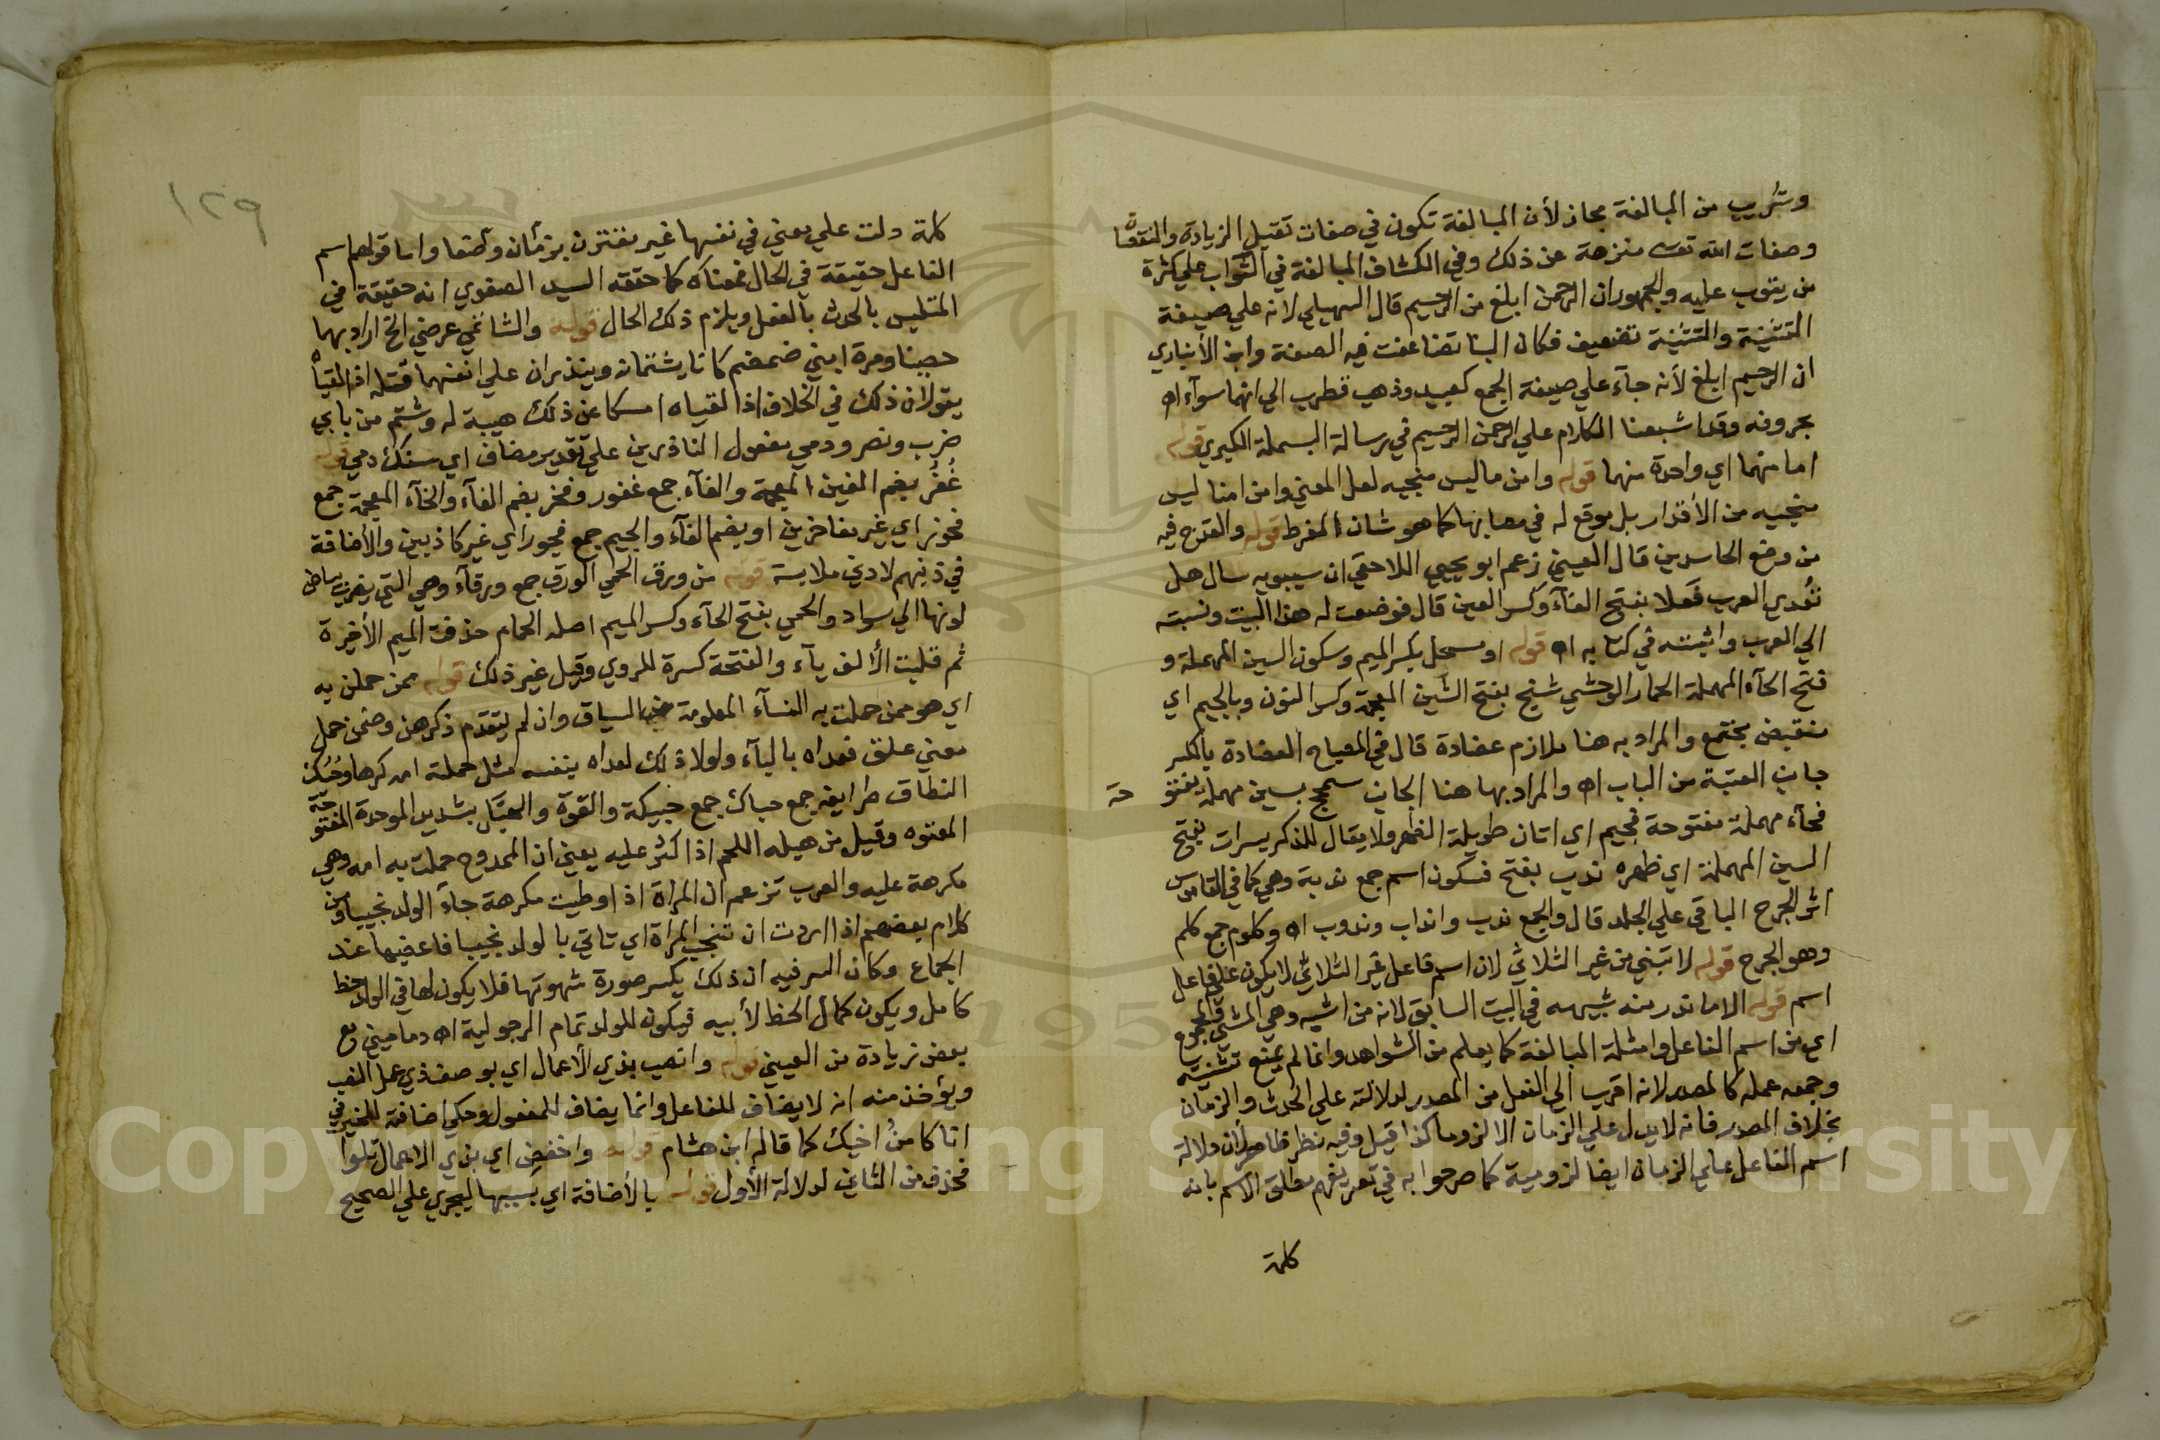 وشريب من المبالغة مجاز لأن المبالغة تكون في صفات تقبل الزيادة والنقصان
وصفات الله تعالى منزهة عن ذلك وفي الكشاف المبالغة في التواب على كثرة
من يتوب عليه والجمهور ان الرحمن ابلغ من الرحيم قال السهيلي لانه على صيغة
التثنية والتثنية تضعيف فكان البنا تضاعفت فيه الصفة وابن الأنباري
ان الرحيم ابلغ لأنه جاء على صيغة الجمع كعبيد وذهب قطرب الي انهما سواء اه
بحروفه وقد اشبعنا الكلام علي الرحمن الرحيم في رسالة البسملة الكبري قوله
اما منهما اي واحدة منهما قوله وامن ماليس منجيه لعل المعني وامن امنا ليس
منجيه من الأقدار بل موقع له في مصايبها كما هو شان المفرط قوله والقدح فيه
من وضع الحاسدين قال العيني زعم ابو يحيي اللاحقي ان سيبويه سال هل
تُعدي العرب فَعلا بفتح الفآء وكسر العين قال فوضعت له هذا البيت ونسبته
الي العرب واثبته في كتابه اه قوله او مسحل بكسر الميم وسكون السين المهملة و
فتح الحآء المهملة الحمار الوحشي شنج بفتح الشين المعجمة وكسر النون وبالجيم اي
منقبض مجتمع والمراد به هنا ملازم عضادة قال في المصباح العضادة بالكسر
جانب العتبة من الباب اه والمراد بها هنا الجانب سمحج بسين مهملة مفتو حة
فحآء مهملة مفتوحة فجيم اي اتان طويلة الظهر ولا يقال للذكر بسرات بفتح
السين المهملة اي ظهره ندب بفتح فسكون اسم جمع ندبة وهي كما في القاموس
اثر الجرح الباقي علي الجلد قال والجمع ندب وانداب وندوب اه وكلوم جمع كلم
وهو الجرح قوله لا تبني من غير الثلاثي لان اسم فاعل غير الثلاثي لا يكون علي فاعل
اسم قوله الا ما ندر منه شبيهه في البيت السابق لانه من اشبه وهي المثني والمجموع
اي من اسم الفاعل وامثلة المبالغة كما يعلم من الشواهد وانما لم يمنع تثنيته
وجمعه عمله كالمصدر لانه اقرب الي الفعل من المصدر لدلالته علي الحدث والزمان
بخلاف المصدر فانه لا يدل علي الزمان الا لزوما كذا قيل وفيه نظر ظاهر لأن دلالة
اسم الفاعل علي الزمان ايضا لزومية كما صرحوا به في تعريفهم مطلق الاسم بانه
كلمة
١٢٩
كلمة دلت علي معني في نفسها غير مقترن بزمان وضعا واما قولهم اسم
الفاعل حقيقة في الحال فمعناه كما حققه السيد الصفوي انه حقيقة في
المتلبس بالحدث بالفعل ويلزم ذلك الحال قوله والشاتمي عرضي الخ اراد بهما
حصينا ومرة ابني ضمضم كانا يشتمانه وينذران علي انفسهما قتله اذا لقياه
يقولان ذلك في الخلاف اذا لقياه امسكا عن ذلك هيبة له وشتم من بابي
ضرب ونصر ودمي مفعول الناذرين علي تقدير مضاف اي سفك دمي قوله
غُفُر بضم الغين المعجمة والفآء جمع غفور وفخر بضم الفآء والخآء المعجمة جمع
فخور اي غير مفاخرين او بضم الفآء والجيم جمع فجور اي غير كاذبين والأضافة
في ذنبهم لادني ملابسة قوله من ورق الحمي الورق جمع ورقآء وهي التي يضرب بياض
لونها الي سواد والحمي بفتح الحآء وكسر الميم اصله الحمام حذفت الميم الأخيرة
ثم قلبت الألف يآء والفتحة كسرة للروي وقيل غير ذلك قوله ممن حملن به
اي هو ممن حملت به النسآء المعلومة من السياق وان لم يتقدم ذكرهن وضمن حمل
معني علق فعداه بالبآء ولولا ذلك لعداه بنفسه مثل حملته امه كرها وحُبك
النطاق طرايقه جمع حباك جمع حبيكة والقوة والمهبَّل بشديد الموحدة المفتو حة
المعتوه وقيل من هبله اللحم اذا كثر عليه يعني ان الممدوح حملت به امه وهي
مكرهة عليه والعرب تزعم ان المراة اذا وطيت مكرهة جاء الولد نجيبا ومن
كلام بعضهم اذا اردت ان تنجب المراة اي تاتي بالولد نجيبا فاغضبها عند
الجماع وكان السر فيه ان ذلك يكسر صورة شهوتها فلا يكون لها في الولد حظ
كامل ويكون كمال الحظ لأبيه فيكون للولد تمام الرجولية اه دماميني مع
بعض زيادة من العيني قوله وانصب بذي الأعمال اي بوصف ذي عمل النصب
ويؤخذ منه انه لا يضاف للفاعل وانما يضاف للمفعول وحكي اضافته للخبر في
انا كامنُ اخيك كما قاله ابن هشام قوله واخفض اي بذي الاعمال تلوا
فحذف من الثاني لدلالة الأول قوله بالأضافة اي بسببها ليجري علي الصحيح
Copyright © King Saud University
1957